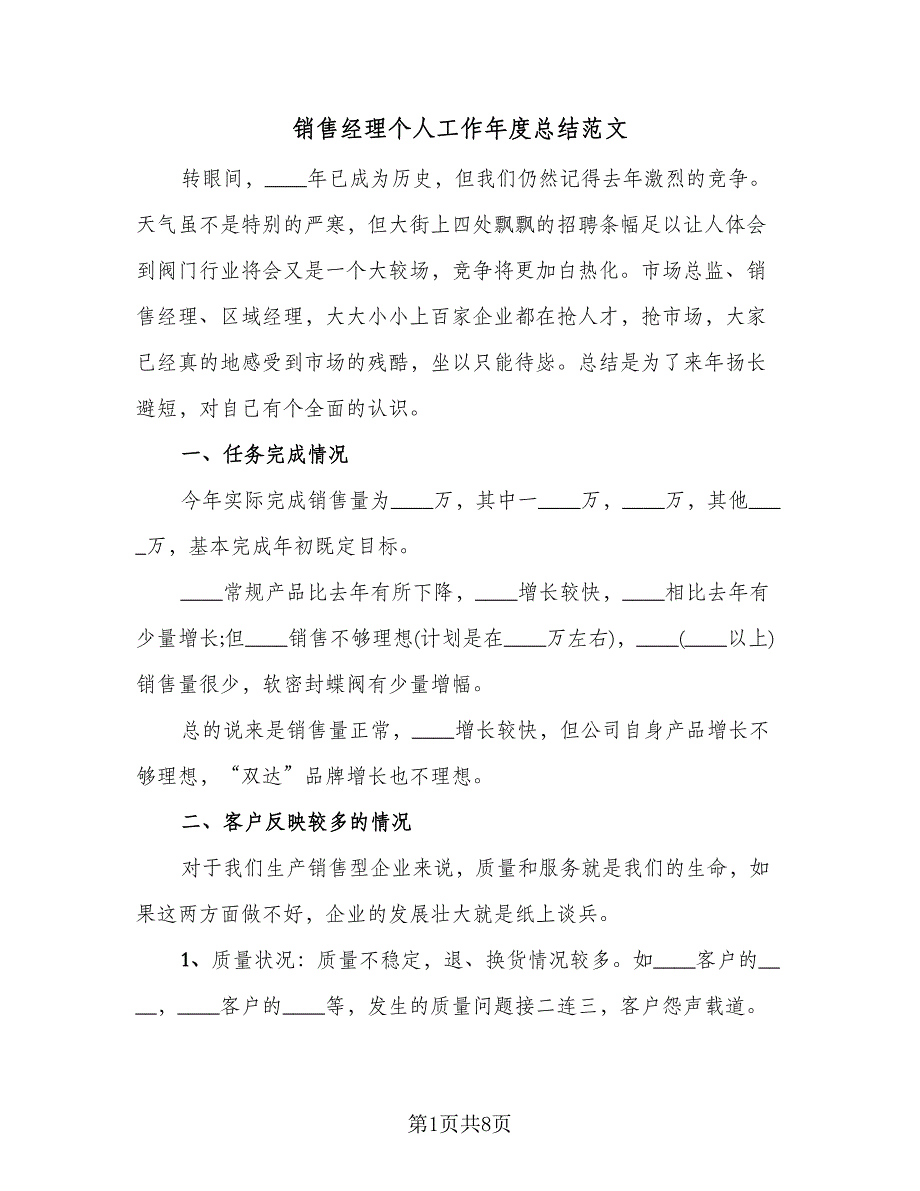 销售经理个人工作年度总结范文
转眼间，____年已成为历史，但我们仍然记得去年激烈的竞争。
天气虽不是特别的严寒，但大街上四处飘飘的招聘条幅足以让人体会
到阀门行业将会又是一个大较场，竞争将更加白热化。市场总监、销
售经理、区域经理，大大小小上百家企业都在抢人才，抢市场，大家
已经真的地感受到市场的残酷，坐以只能待毖。总结是为了来年扬长
避短，对自己有个全面的认识。
一、任务完成情况
今年实际完成销售量为____万，其中一____万，____万，其他___
_万，基本完成年初既定目标。
____常规产品比去年有所下降，____增长较快，____相比去年有
少量增长;但____销售不够理想(计划是在____万左右)，____(____以上)
销售量很少，软密封蝶阀有少量增幅。
总的说来是销售量正常，____增长较快，但公司自身产品增长不
够理想，“双达”品牌增长也不理想。
二、客户反映较多的情况
对于我们生产销售型企业来说，质量和服务就是我们的生命，如
果这两方面做不好，企业的发展壮大就是纸上谈兵。
1、质量状况：质量不稳定，退、换货情况较多。如____客户的__
__，____客户的____等，发生的质量问题接二连三，客户怨声载道。
第1页共8页